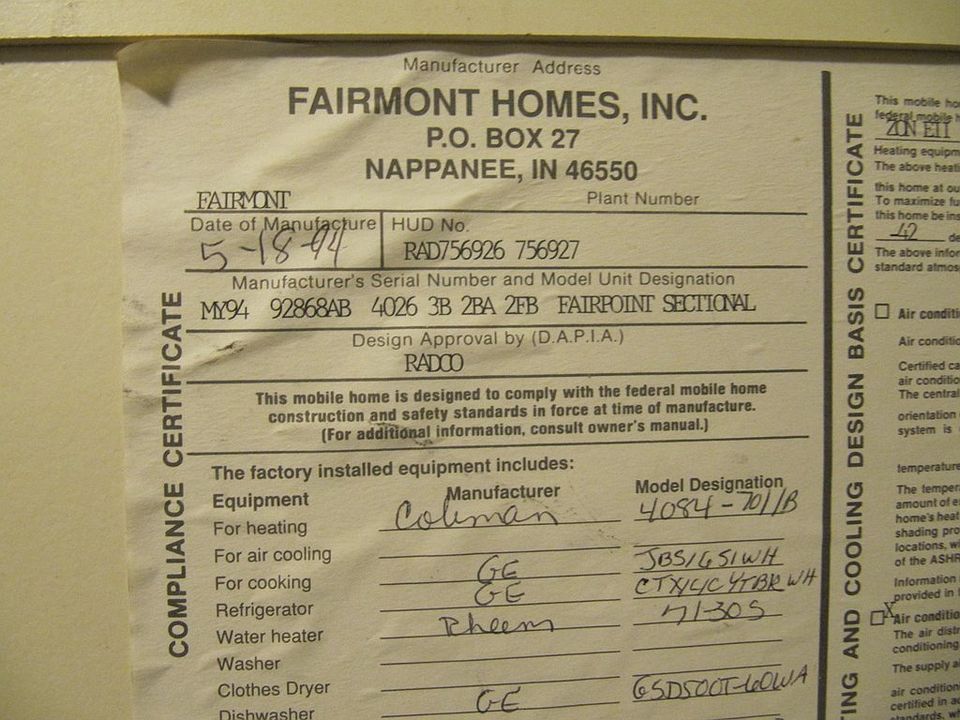 Manufacturer Address
FAIRMONT HOMES, INC.
P.O. BOX 27
NAPPANEE, IN 46550
FAIRMONT Plant Number
Date of Manufacture HUD No.
5-18-94 RAD756926 756927
Manufacturer's Serial Number and Model Unit Designation
MY94 92868AB 4026 3B 2BA 2FB FAIRPOINT SECTIONAL
Design Approval by (D.A.P.I.A.)
RADCO
This mobile home is designed to comply with the federal mobile home
construction and safety standards in force at time of manufacture.
(For additional information, consult owner's manual.)
The factory installed equipment includes:
Equipment Manufacturer Model Designation
For heating Coleman 4084-7011B
For air cooling
For cooking GE JBS16S1WH
Refrigerator GE
Water heater Rheem 71-30S
Washer
Clothes Dryer
Dishwasher GE GSD500T-60WA
COMPLIANCE CERTIFICATE
ING AND COOLING DESIGN BASIS CERTIFICATE
This mobile ho
federal mobile h
ZON ETI
Heating equipm
The above heati
this home at ou
To maximize fu
this home be ins
-42 de
The above infor
standard atmos
Air conditi
Air conditio
Certified ca
air conditio
The central
orientation
system is
temperature
The tempera
amount of e
home's heat
shading pro
locations, wi
of the ASHR
Information
provided in t
X Air conditio
The air distr
conditioning
The supply a
air condition
certified in a
standards, w